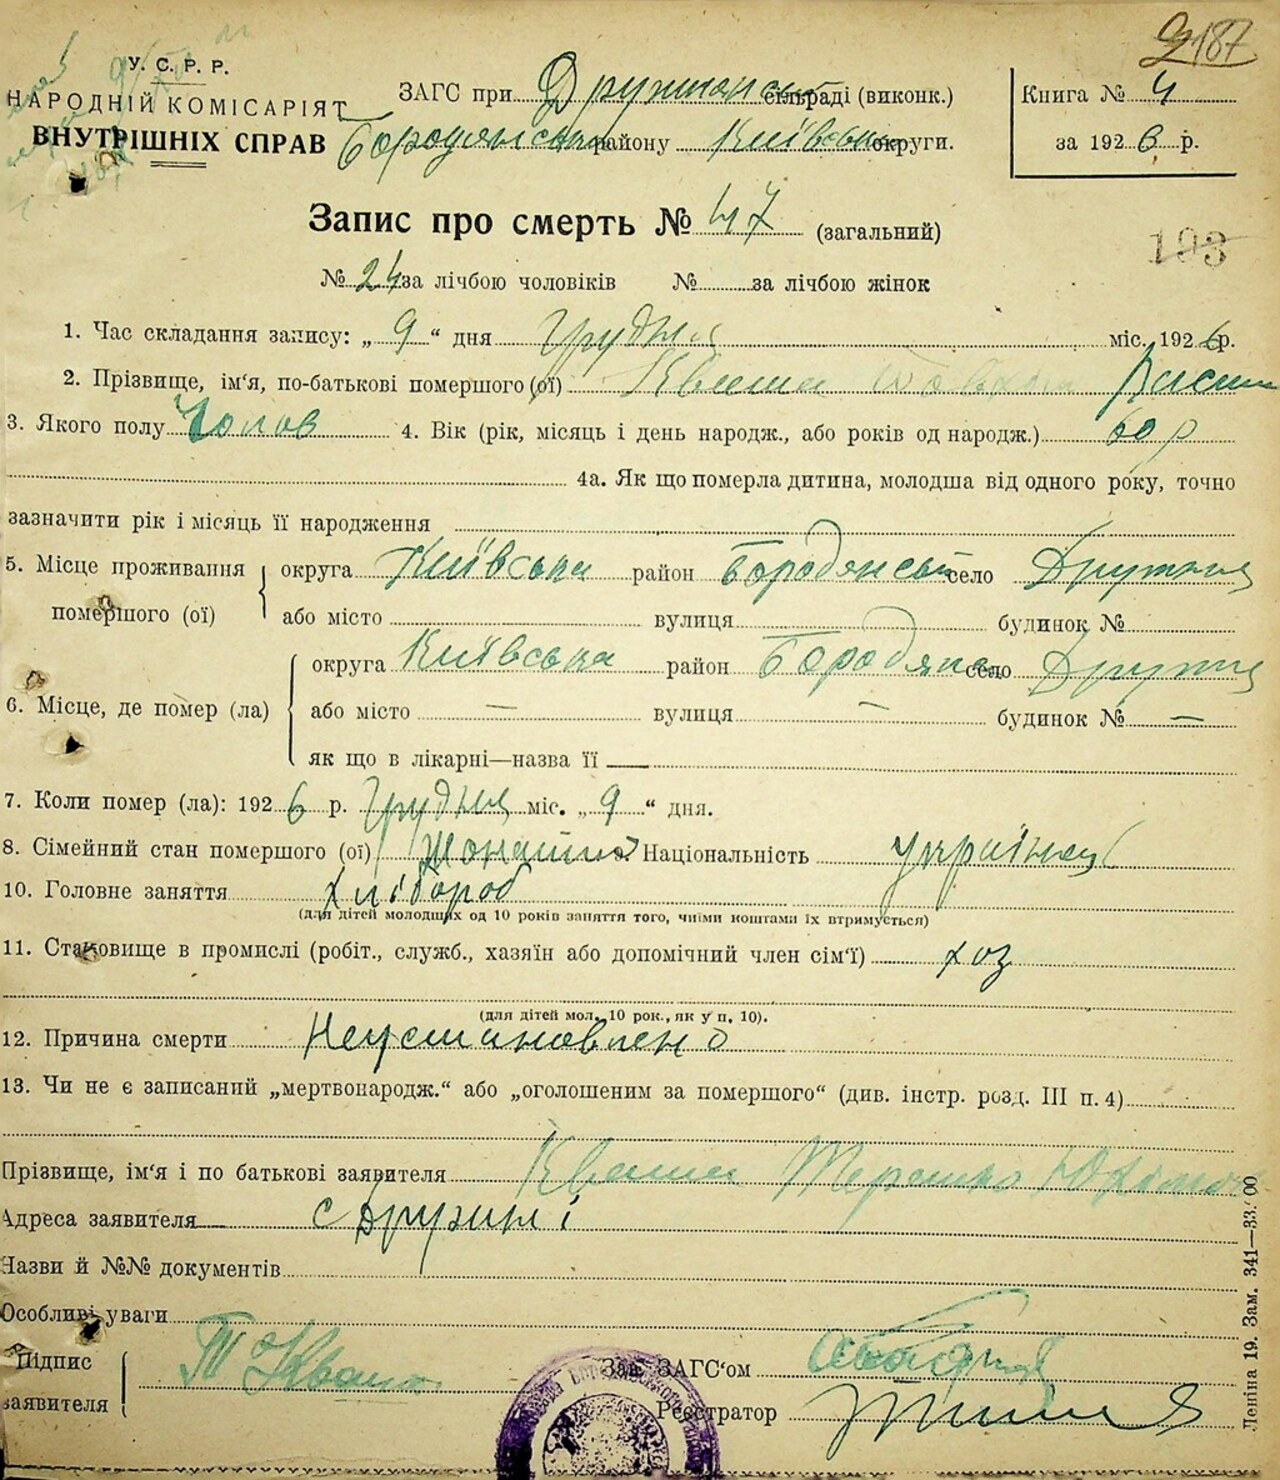 187
У. С. Р. Р.
НАРОДНІЙ КОМІСАРІЯТ
ВНУТРІШНІХ СПРАВ
ЗАГС при Дружнянськ сільраді (виконк.)
Бородянськ району Київської округи.
Книга № 4
за 1926 р.
Запис про смерть № 47 (загальний)
193
№ 24 за лічбою чоловіків № за лічбою жінок
1. Час складання запису: „9“ дня Грудня міс. 1926 р.
2. Прізвище, ім'я, по-батькові помершого (ої) Кваша
3. Якого полу Чолов 4. Вік (рік, місяць і день народж., або років од народж.) 60 р
4а. Як що померла дитина, молодша від одного року, точно
зазначити рік і місяць її народження
5. Місце проживання помершого (ої) округа Київська район Бородянськ село Дружня
або місто вулиця будинок №
6. Місце, де помер (ла) округа Київська район Бородянс село Дружня
або місто — вулиця — будинок № —
як що в лікарні—назва її
7. Коли помер (ла): 1926 р. Грудня міс. „9“ дня.
8. Сімейний стан помершого (ої) Жонатий 9. Національність українец
10. Головне заняття хлібороб
(для дітей молодщих од 10 років заняття того, чиїми коштами їх втримується)
11. Становище в промислі (робіт., служб., хазяїн або допомічний член сім'ї) хоз
(для дітей мол. 10 рок., як у п. 10).
12. Причина смерти Неустановлено
13. Чи не є записаний „мертвонародж.“ або „оголошеним за помершого“ (див. інстр. розд. III п. 4)
Прізвище, ім'я і по батькові заявителя Кваша
Адреса заявителя с Дружні
Назви й №№ документів
Особливі уваги
Підпис заявителя Т Кваша
Зав. ЗАГС'ом
Реєстратор
Леніна 19. Зам. 341—33.